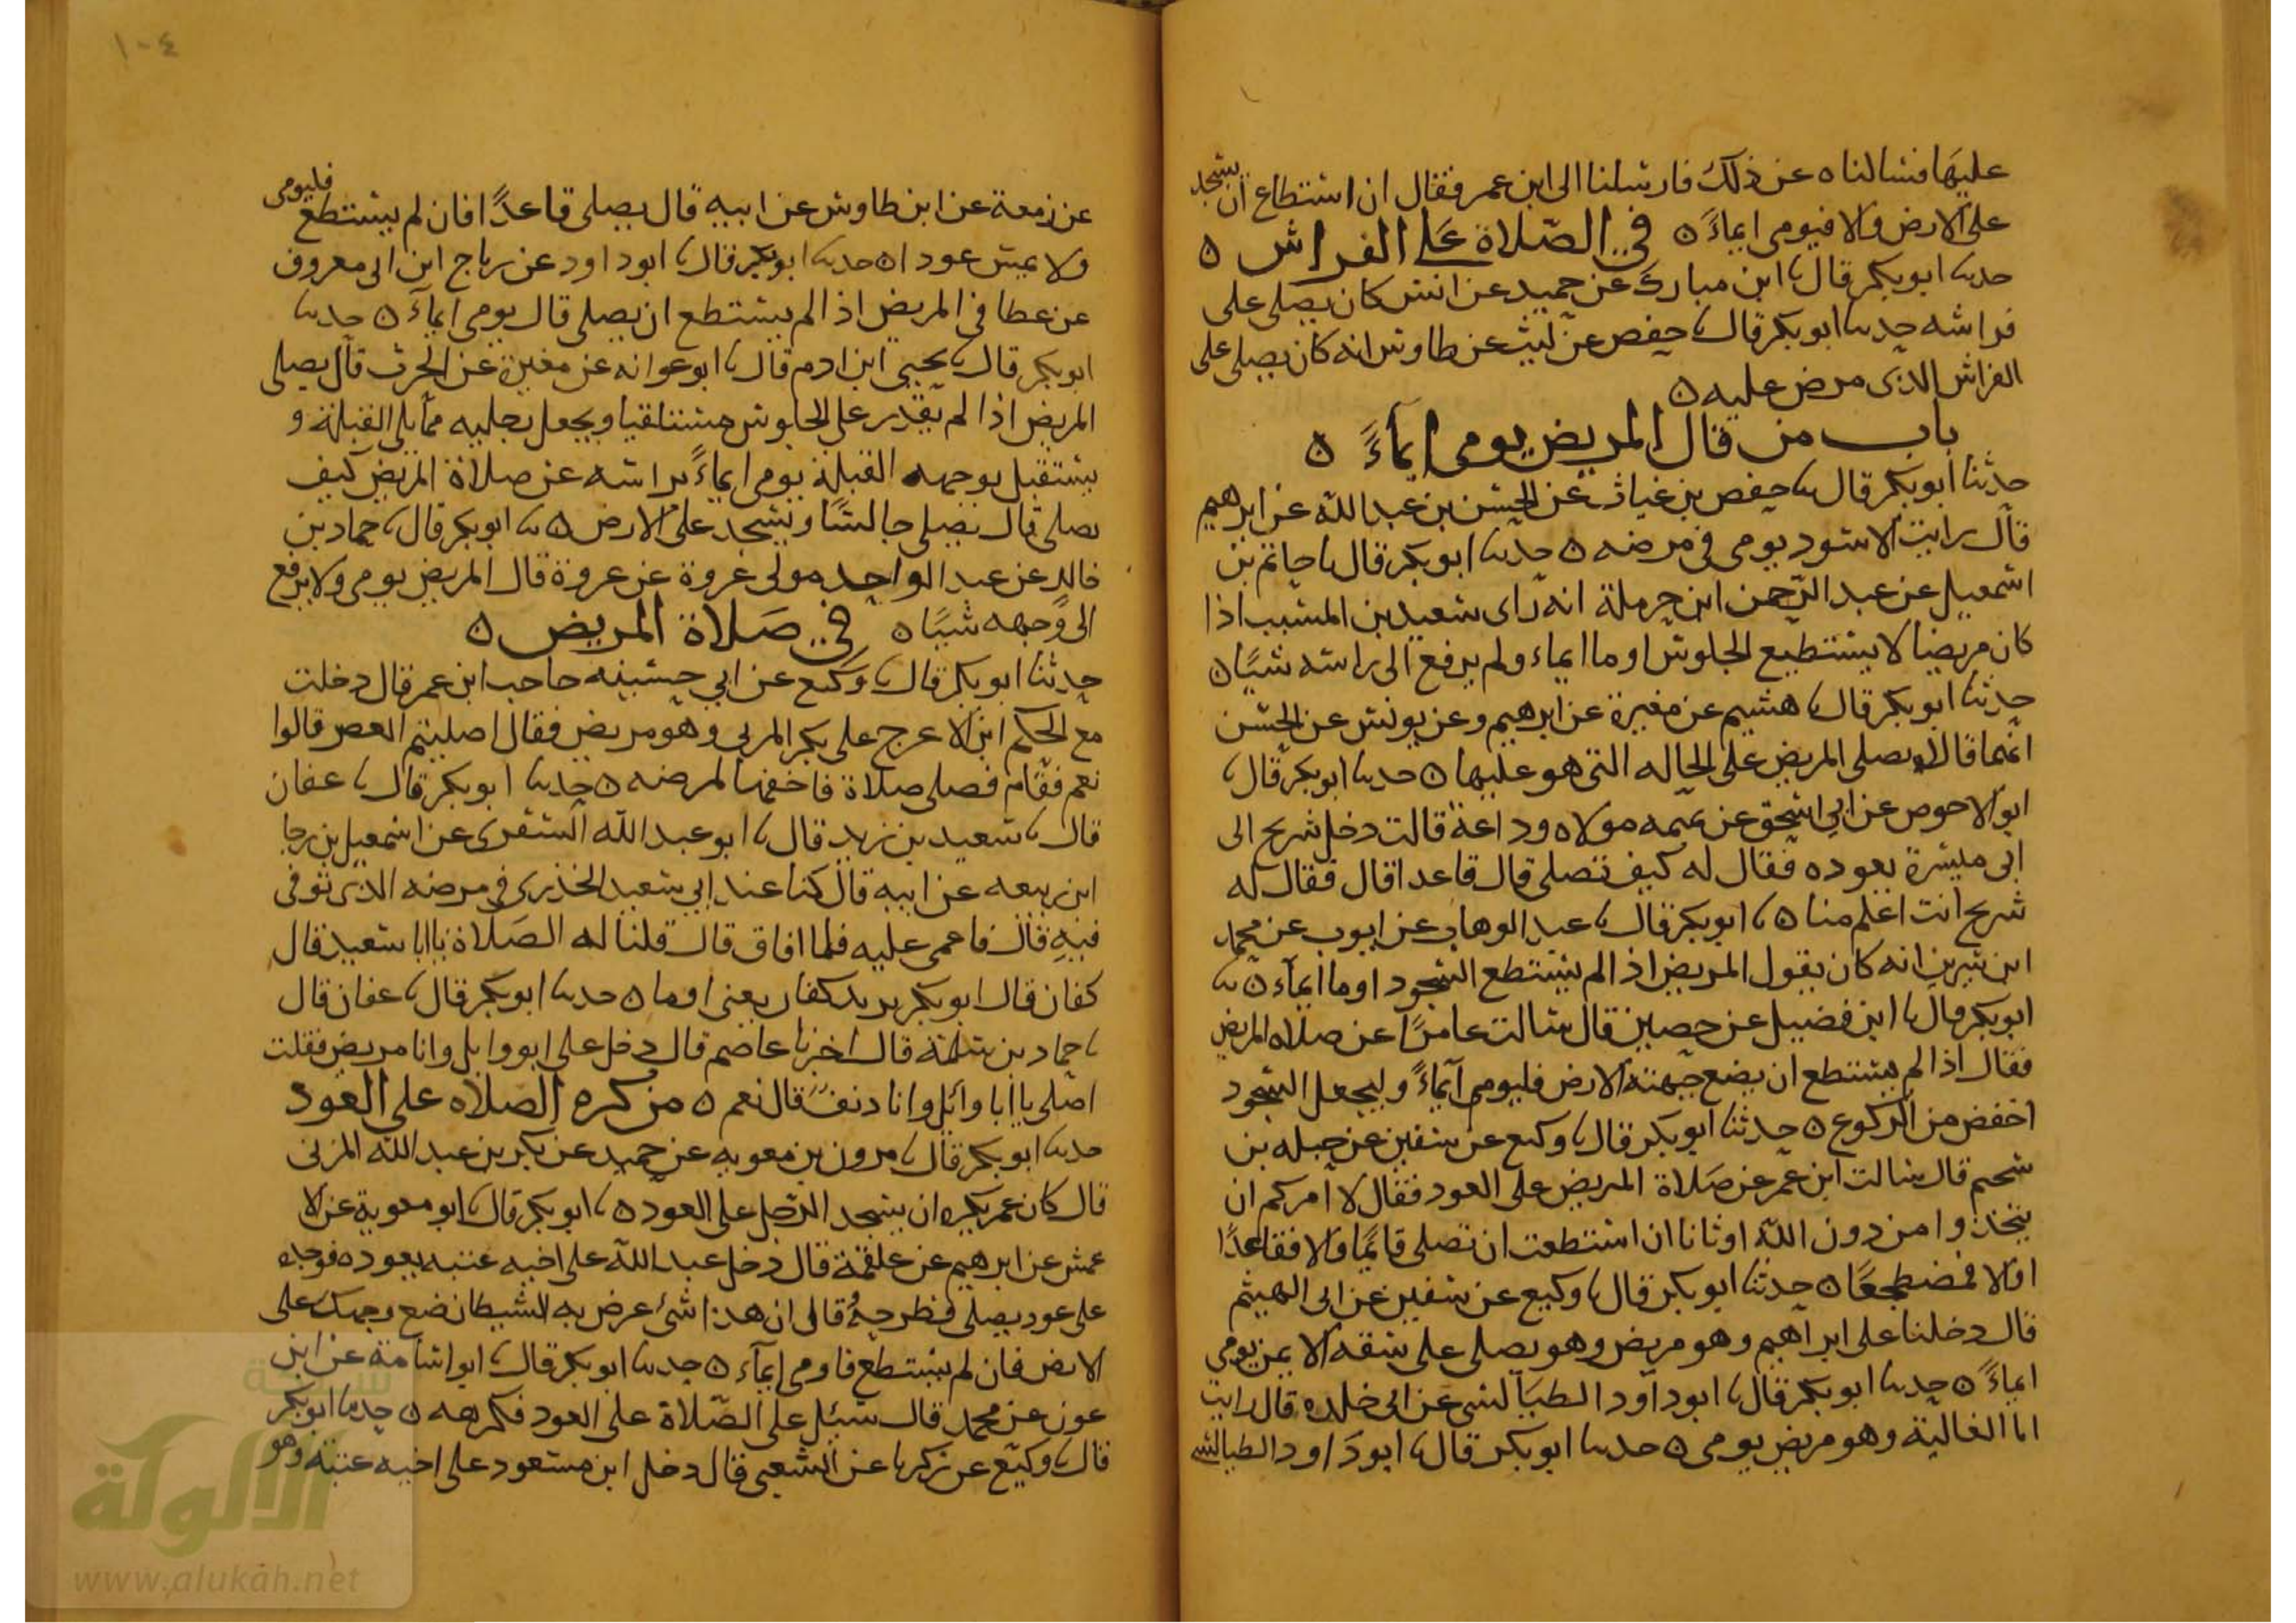 عليها فسالناه عن ذلك فارسلنا الى ابن عمر فقال ان استطاع ان يسجد
على الارض والا فيومى ايماءً ه في الصّلاة على الفراش ه
حدثنا ابو بكر قال نا ابن مبارك عن حميد عن انس كان يصلى على
فراشه حدثنا ابو بكر قال نا حفص عن ليث عن طاوس انه كان يصلى على
الفراش الذى مرض عليه ه
باب من قال المريض يومى ايماءً ه
حدثنا ابو بكر قال نا حفص بن غياث عن الحسن بن عبد الله عن ابرهيم
قال رايت الاسود يومى فى مرضه ه حدثنا ابو بكر قال نا حاتم بن
اسمعيل عن عبد الرحمن ابن حرملة انه راى سعيد بن المسيب اذا
كان مريضا لا يستطيع الجلوس اوما ايماء ولم يرفع الى راسه شيًا ه
حدثنا ابو بكر قال نا هشيم عن مغيرة عن ابرهيم وعن يونس عن الحسن
انهما قالا يصلى المريض على الحاله التى هو عليها ه حدثنا ابو بكر قال نا
ابو الاحوص عن ابي اسحق عن عمه مولاه وداعة قالت دخل شريح الى
ابى ميسرة يعوده فقال له كيف تصلى قال قاعدا قال فقال له
شريح انت اعلم منا ه نا ابو بكر قال نا عبد الوهاب عن ايوب عن محمد
ابن سيرين انه كان يقول المريض اذا لم يستطع السجود اوما ايماء ه نا
ابو بكر قال نا ابن فضيل عن حصين قال سالت عامرًا عن صلاه المريض
فقال اذا لم يستطع ان يضع جبهته الارض فليومى ايماءً وليجعل السجود
اخفض من الركوع ه حدثنا ابو بكر قال نا وكيع عن سفين عن جبله بن
سحيم قال سالت ابن عمر عن صلاة المريض على العود فقال لا آمركم ان
تتخذوا من دون الله اوثانا ان استطعت ان تصلى قائمًا والا فقاعدًا
والا فمضطجعًا ه حدثنا ابو بكر قال نا وكيع عن سفين عن ابى الهيثم
قال دخلنا على ابراهيم وهو مريض وهو يصلى على شقه الايمن يومى
ايماءً ه حدثنا ابو بكر قال نا ابو داود الطيالسى عن ابى خلده قال رايت
ابا العالية وهو مريض يومى ه حدثنا ابو بكر قال نا ابو داود الطيالسى
١٠٤
عن زمعة عن ابن طاوس عن ابيه قال يصلى قاعدًا فان لم يستطع فليومى
ولا يمس عودا ه حدثنا ابو بكر قال نا ابو داود عن رباح ابن ابى معروف
عن عطا فى المريض اذا لم يستطع ان يصلى قال يومى ايماءً ه حدثنا
ابو بكر قال نا يحيى ابن ادم قال نا ابو عوانه عن مغيرة عن الحرث قال يصلى
المريض اذا لم يقدر على الجلوس مستلقيا ويجعل رجليه مما يلى القبلة و
يستقبل بوجهه القبلة يومى ايماءً براسه عن صلاة المريض كيف
يصلى قال يصلى جالسًا ويسجد على الارض ه نا ابو بكر قال نا حماد بن
خالد عن عبد الواحد مولى عروة عن عروة قال المريض يومى ولا يرفع
الى وجهه شيًا ه في صلاة المريض ه
حدثنا ابو بكر قال نا وكيع عن ابي حسينه حاجب ابن عمر قال دخلت
مع الحكم ابن الاعرج على بكر المزنى وهو مريض فقال اصليتم العصر قالوا
نعم فقام فصلى صلاة فاخفها لمرضه ه حدثنا ابو بكر قال نا عفان
قال نا سعيد بن زيد قال نا ابو عبد الله الشقرى عن اسمعيل بن رجا
ابن ربيعه عن ابيه قال كنا عند ابي سعيد الخدرى فى مرضه الذى توفى
فيه قال فاغمى عليه فلما افاق قال قلنا له الصلاة يا ابا سعيد قال
كفان قال ابو بكر يريد كفان يعنى اوما ه حدثنا ابو بكر قال نا عفان قال
نا حماد بن سلمة قال اخبرنا عاصم قال دخل على ابو وايل وانا مريض فقلت
اصلى يا ابا وائل وانا دنف قال نعم ه من كره الصلاه على العود
حدثنا ابو بكر قال نا مرون بن معويه عن حميد عن بكر بن عبد الله المزنى
قال كان عمر يكره ان يسجد الرجل على العود ه نا ابو بكر قال نا ابو معوية عن الا
عمش عن ابرهيم عن علقمة قال دخل عبد الله على اخيه عتبه يعوده فوجده
على عود يصلى فطرحه وقال ان هذا شئ عرض به الشيطان ضع وجهك على
الارض فان لم يستطع فاومى ايماء ه حدثنا ابو بكر قال نا ابو اسامة عن ابن
عون عن محمد قال سئل على الصّلاة على العود فكرهه ه حدثنا ابو بكر
قال نا وكيع عن زكريا عن الشعبى قال دخل ابن مسعود على اخيه عتبة وهو
شبكة
الألوكة
www.alukah.net